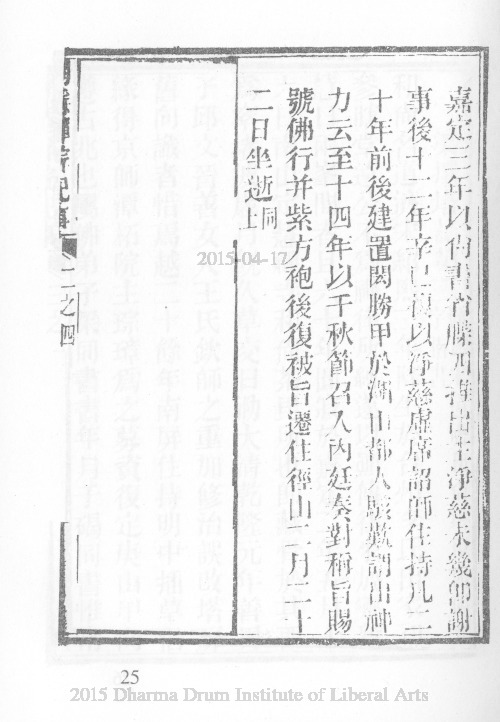 嘉定三年以尚書省牒四擇出主淨慈未幾即謝
事後十二年辛巳復以淨慈虛席詔師住持凡二
十年前後建置閎勝甲於湖山都人駭歎謂出神
力云至十四年以千秋節召入內廷奏對稱旨賜
號佛行并紫方袍後復被旨遷住徑山二月二十
二日坐逝同上
二之四
2015-04-17
25
2015 Dharma Drum Institute of Liberal Arts